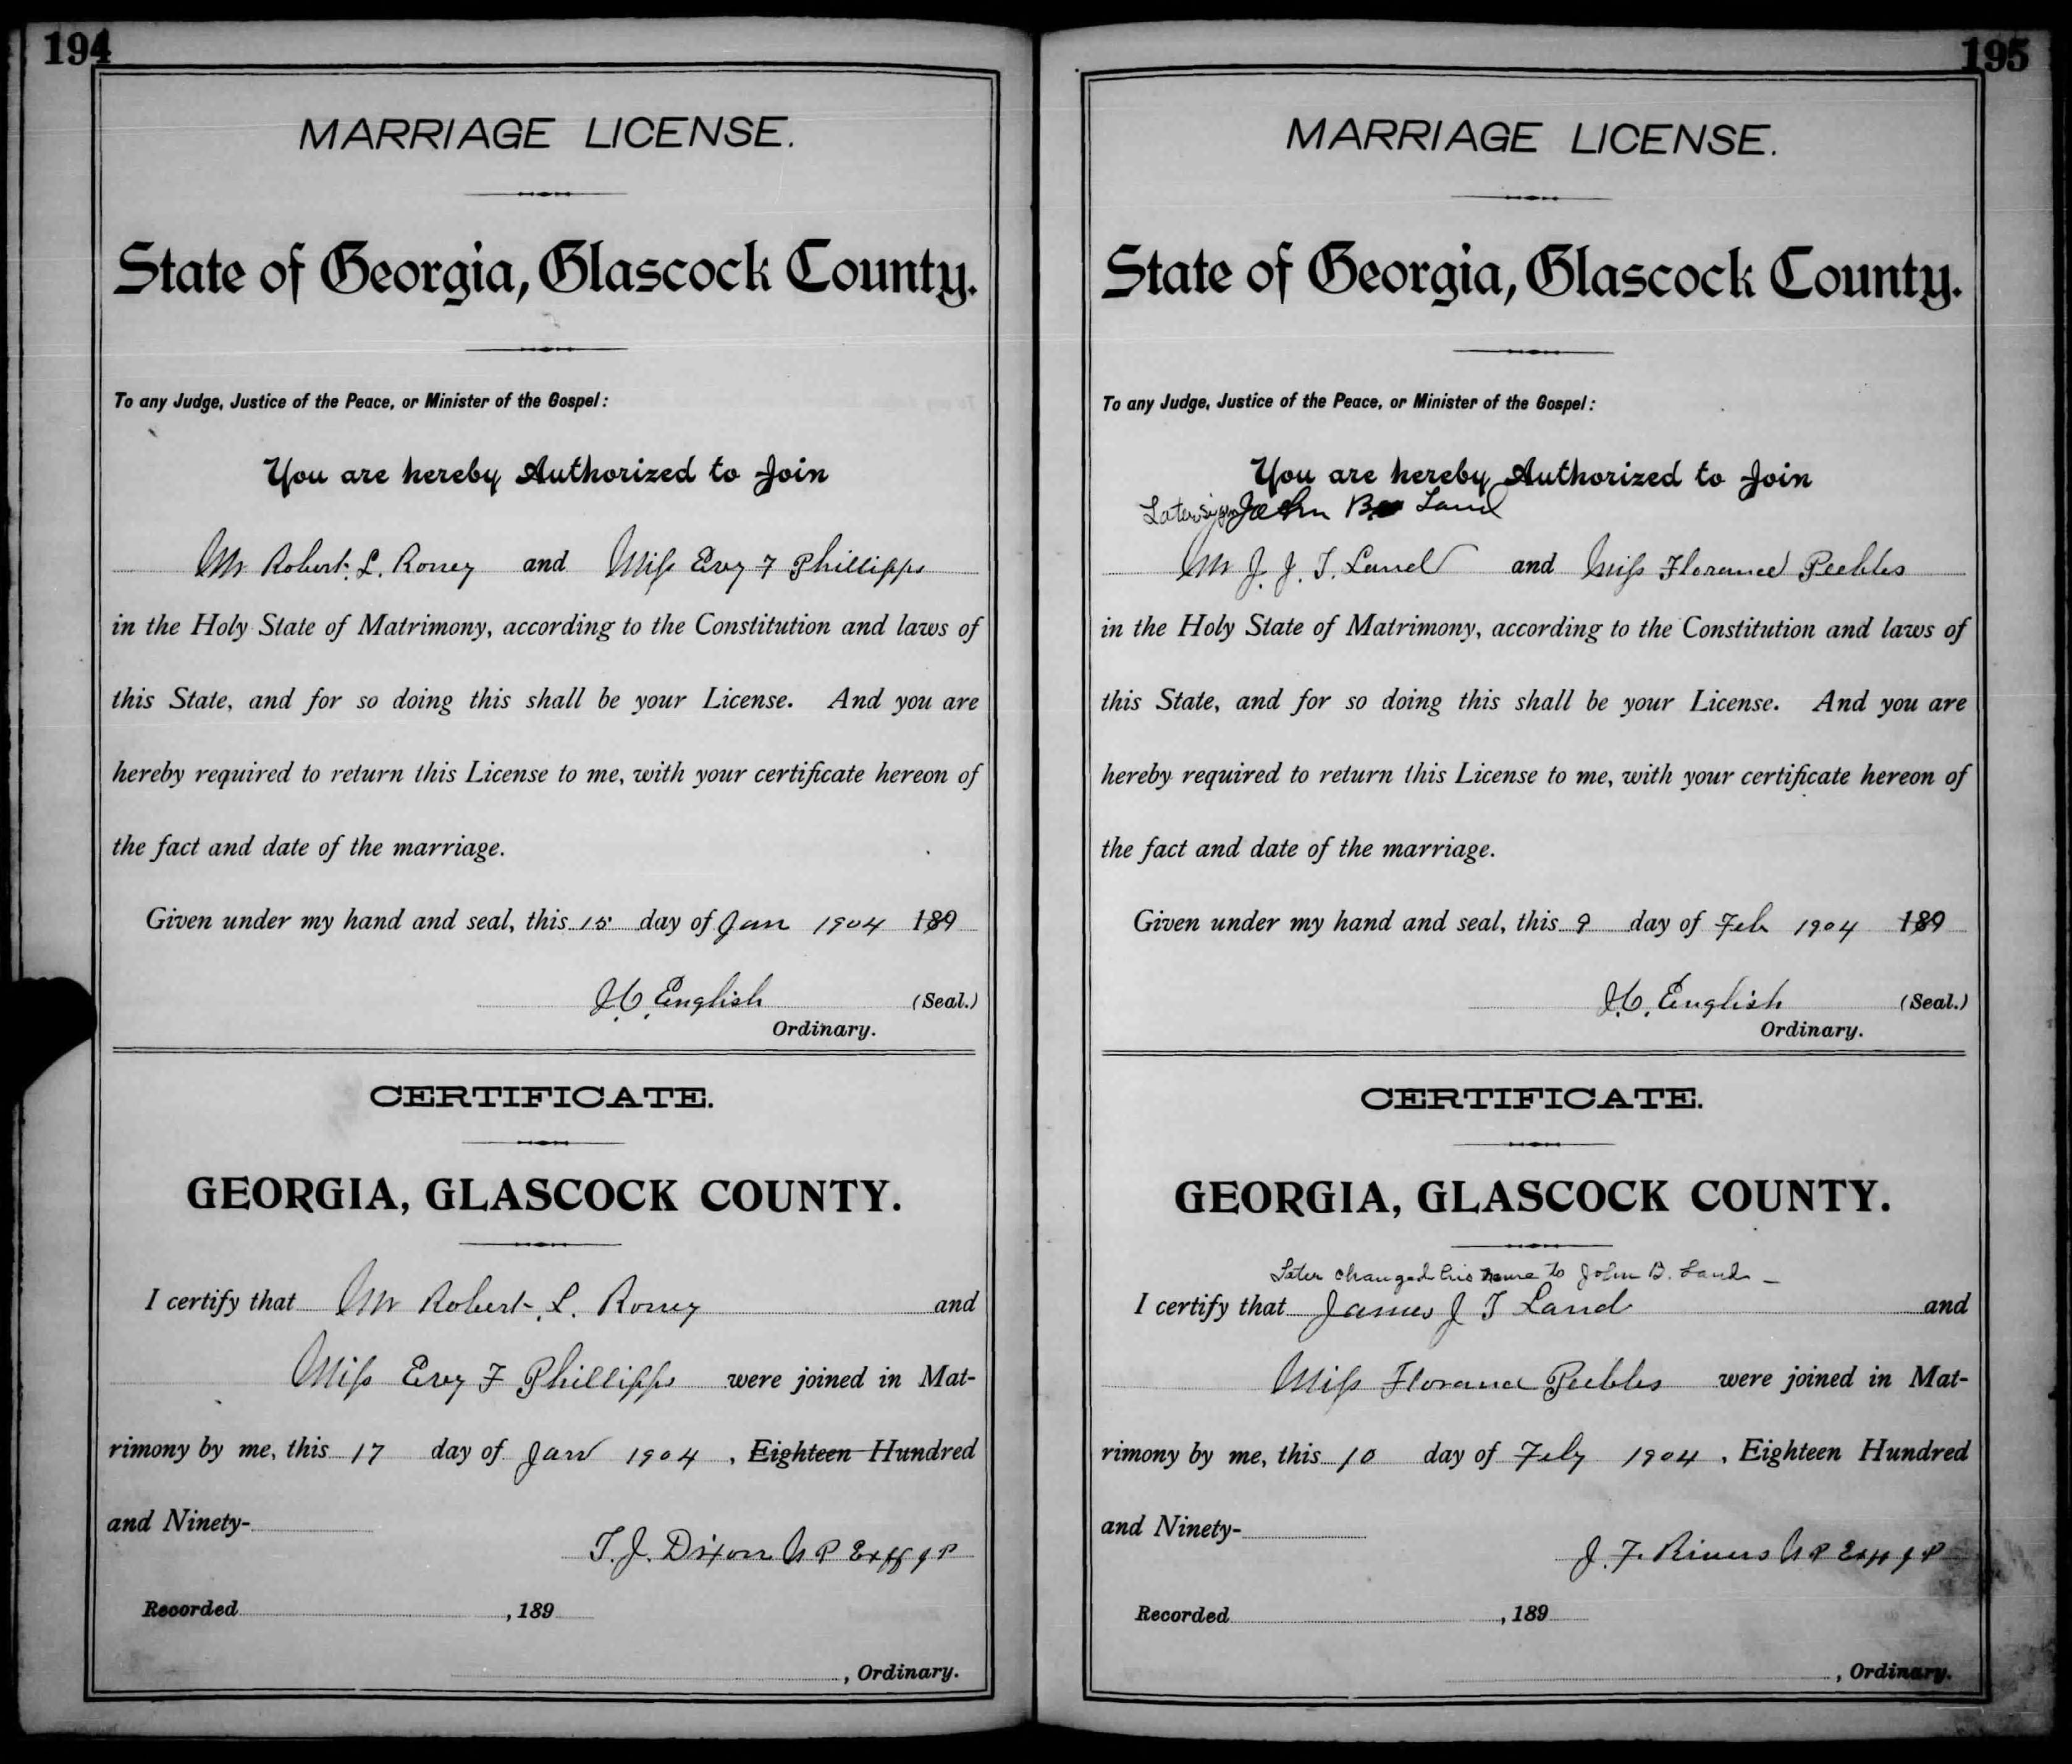 194
MARRIAGE LICENSE.
State of Georgia, Glascock County.
To any Judge, Justice of the Peace, or Minister of the Gospel:
You are hereby Authorized to Join
Mr Robert. L. Roney and Miss Evy F Phillipps
in the Holy State of Matrimony, according to the Constitution and laws of
this State, and for so doing this shall be your License. And you are
hereby required to return this License to me, with your certificate hereon of
the fact and date of the marriage.
Given under my hand and seal, this 15 day of Jan 1904 189
J.C. English (Seal.)
Ordinary.
CERTIFICATE.
GEORGIA, GLASCOCK COUNTY.
I certify that Mr Robert. L. Roney and
Miss Evy F Phillipps were joined in Mat-
rimony by me, this 17 day of Jan 1904, Eighteen Hundred
and Ninety-
T. J. Dixon N P Exff J P
Recorded , 189
, Ordinary.
195
MARRIAGE LICENSE.
State of Georgia, Glascock County.
To any Judge, Justice of the Peace, or Minister of the Gospel:
You are hereby Authorized to Join
Later John B Land
Mr J. J. T. Land and Miss Florance Peebles
in the Holy State of Matrimony, according to the Constitution and laws of
this State, and for so doing this shall be your License. And you are
hereby required to return this License to me, with your certificate hereon of
the fact and date of the marriage.
Given under my hand and seal, this 9 day of Feb 1904 189
J.C. English (Seal.)
Ordinary.
CERTIFICATE.
GEORGIA, GLASCOCK COUNTY.
Later changed his name to John B. Land -
I certify that James J T Land and
Miss Florance Peebles were joined in Mat-
rimony by me, this 10 day of Feby 1904, Eighteen Hundred
and Ninety-
J. F. Rivers N P Exff J P
Recorded , 189
, Ordinary.